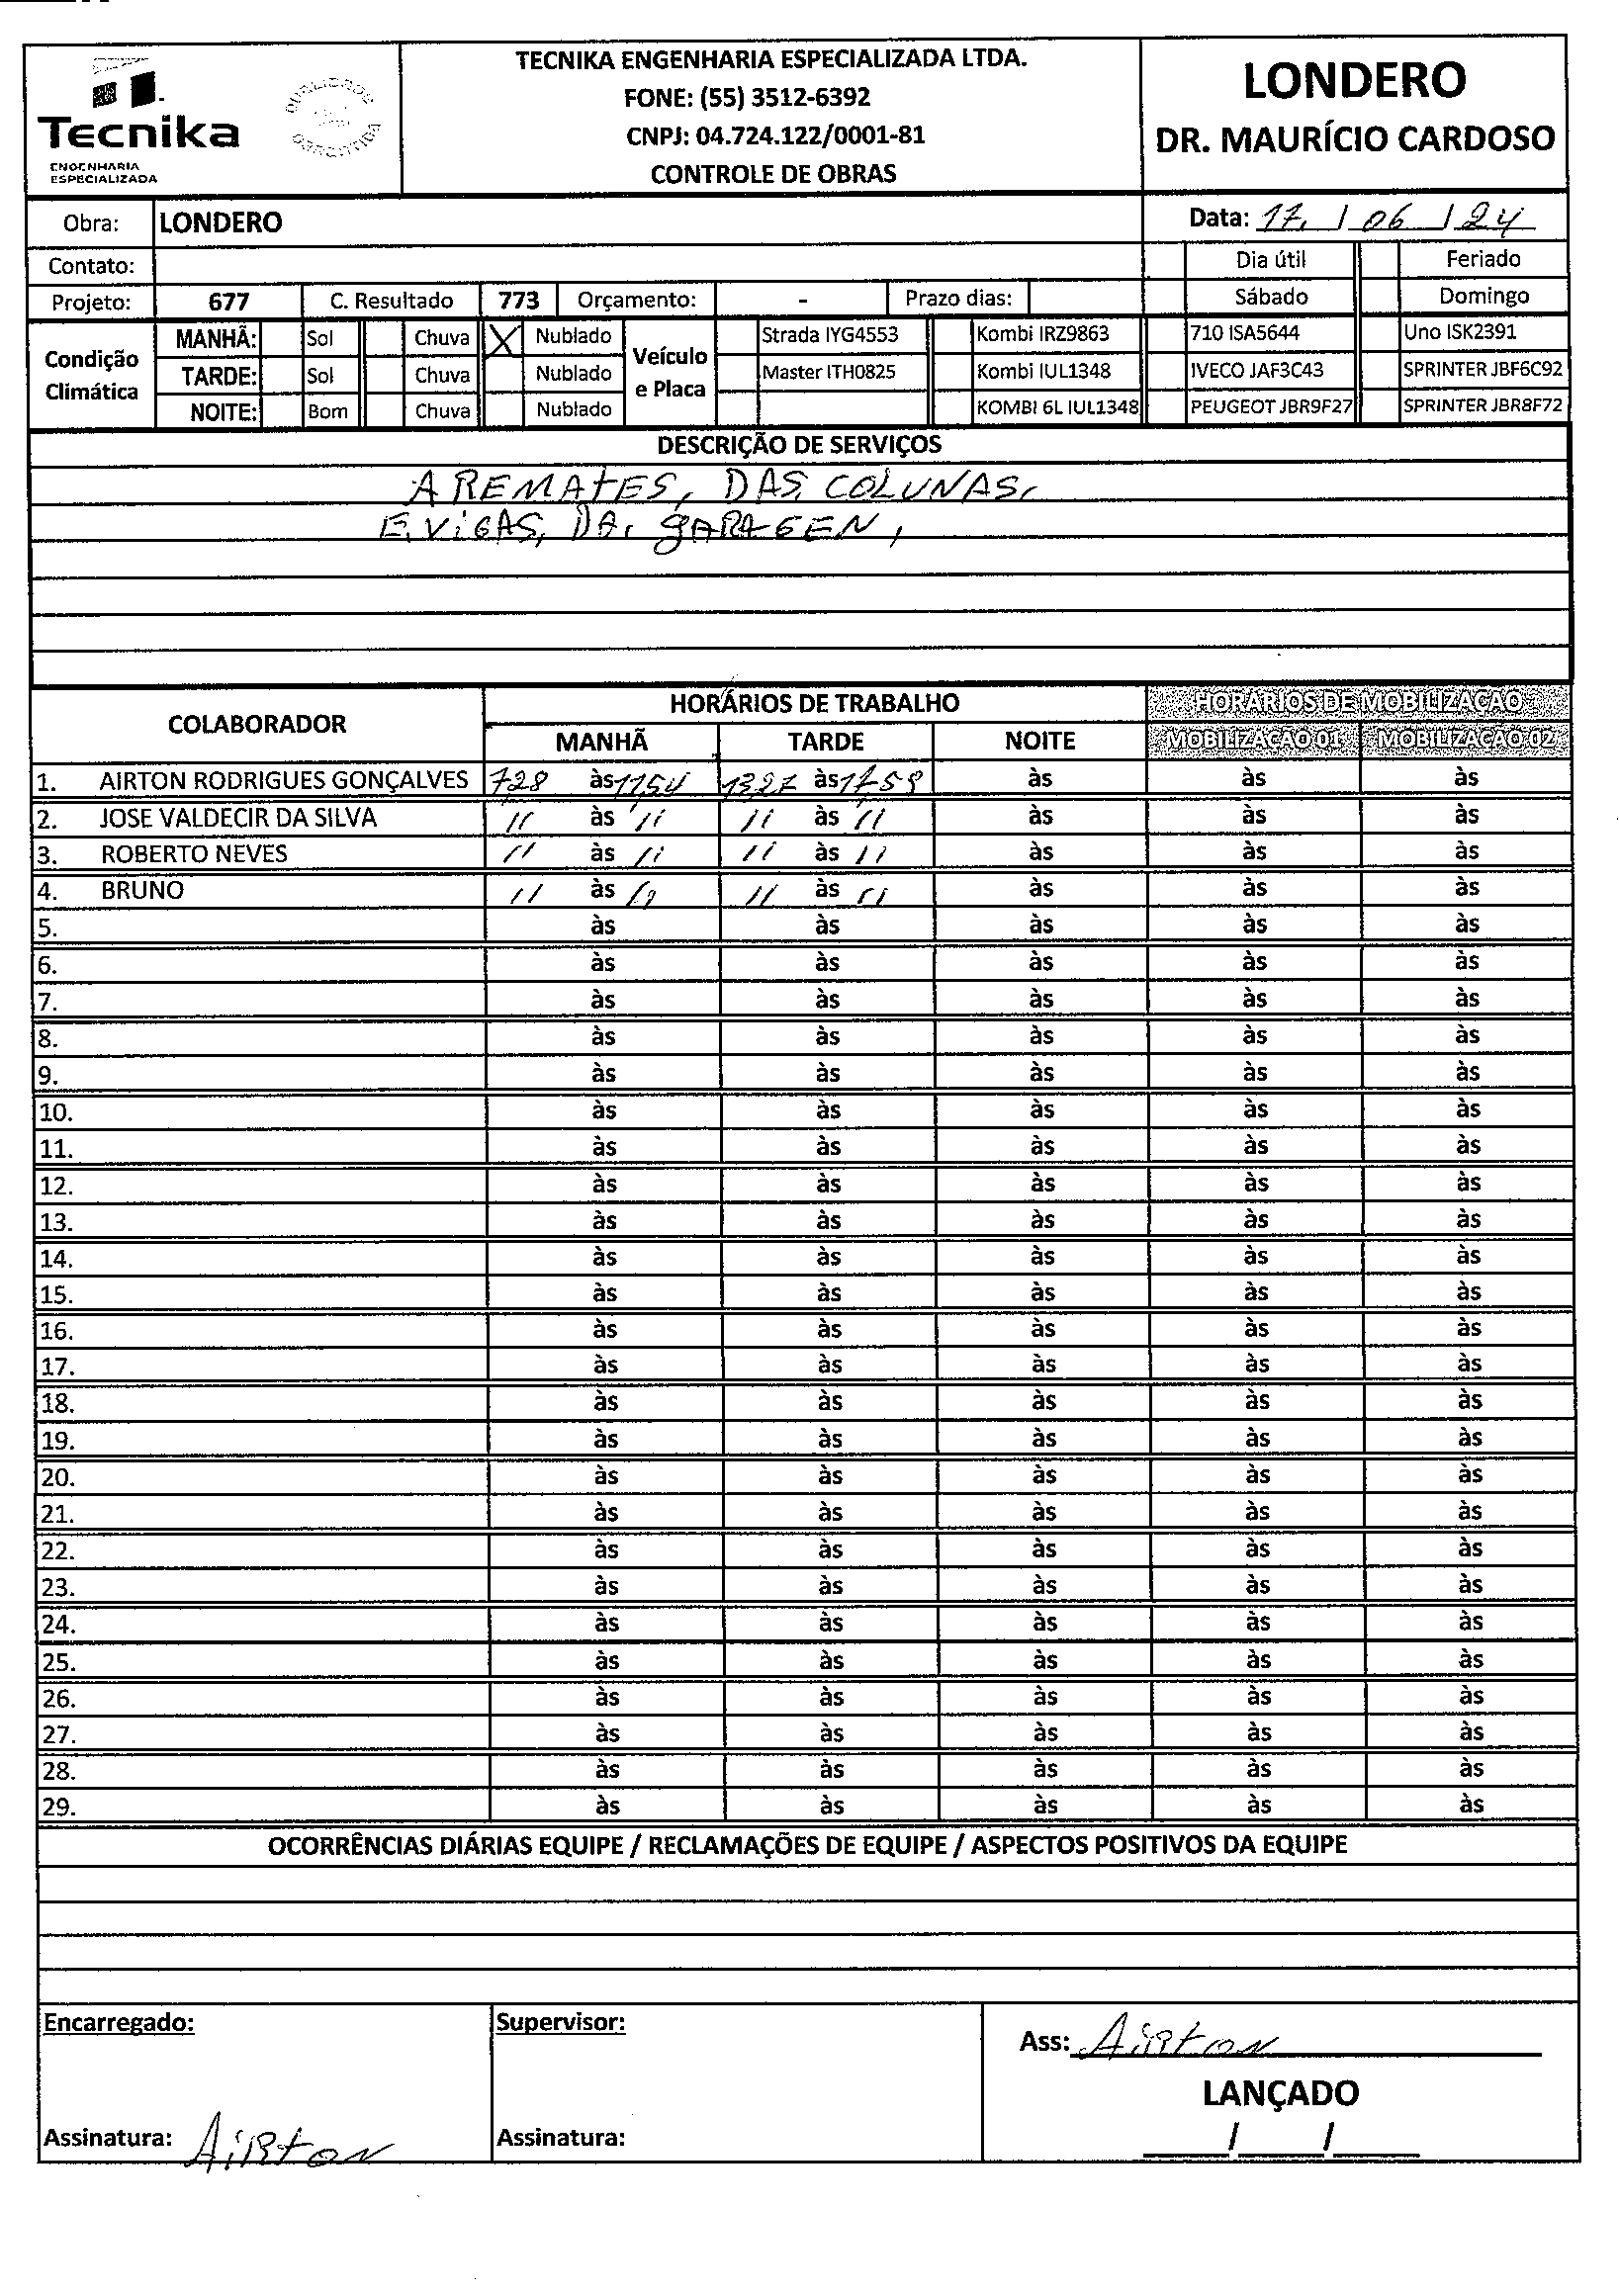 Tecnika
ENGENHARIA
ESPECIALIZADA
TECNIKA ENGENHARIA ESPECIALIZADA LTDA.
FONE: (55) 3512-6392
CNPJ: 04.724.122/0001-81
CONTROLE DE OBRAS
LONDERO
DR. MAURÍCIO CARDOSO
Obra: LONDERO Data: 17 / 06 / 24
Contato: Dia útil Feriado
Projeto: 677 C. Resultado 773 Orçamento: - Prazo dias: Sábado Domingo
Condição Climática
MANHÃ: Sol Chuva X Nublado
TARDE: Sol Chuva Nublado
NOITE: Bom Chuva Nublado
Veículo e Placa
Strada IYG4553 Kombi IRZ9863 710 ISA5644 Uno ISK2391
Master ITH0825 Kombi IUL1348 IVECO JAF3C43 SPRINTER JBF6C92
KOMBI 6L IUL1348 PEUGEOT JBR9F27 SPRINTER JBR8F72
DESCRIÇÃO DE SERVIÇOS
AREMATES, DAS, COLUNAS,
E, ViGAS, DA, GARAGEN,
COLABORADOR HORÁRIOS DE TRABALHO HORÁRIOS DE MOBILIZAÇÃO
MANHÃ TARDE NOITE MOBILIZAÇÃO 01 MOBILIZAÇÃO 02
1. AIRTON RODRIGUES GONÇALVES 7,28 às 11,54 13,27 às 17,59 às às às
2. JOSE VALDECIR DA SILVA 11 às 11 11 às 11 às às às
3. ROBERTO NEVES 11 às 11 11 às 11 às às às
4. BRUNO 11 às 11 11 às 11 às às às
5. às às às às às
6. às às às às às
7. às às às às às
8. às às às às às
9. às às às às às
10. às às às às às
11. às às às às às
12. às às às às às
13. às às às às às
14. às às às às às
15. às às às às às
16. às às às às às
17. às às às às às
18. às às às às às
19. às às às às às
20. às às às às às
21. às às às às às
22. às às às às às
23. às às às às às
24. às às às às às
25. às às às às às
26. às às às às às
27. às às às às às
28. às às às às às
29. às às às às às
OCORRÊNCIAS DIÁRIAS EQUIPE / RECLAMAÇÕES DE EQUIPE / ASPECTOS POSITIVOS DA EQUIPE
Encarregado: Supervisor:
Ass: Airton
LANÇADO
Assinatura: Airton Assinatura: / /